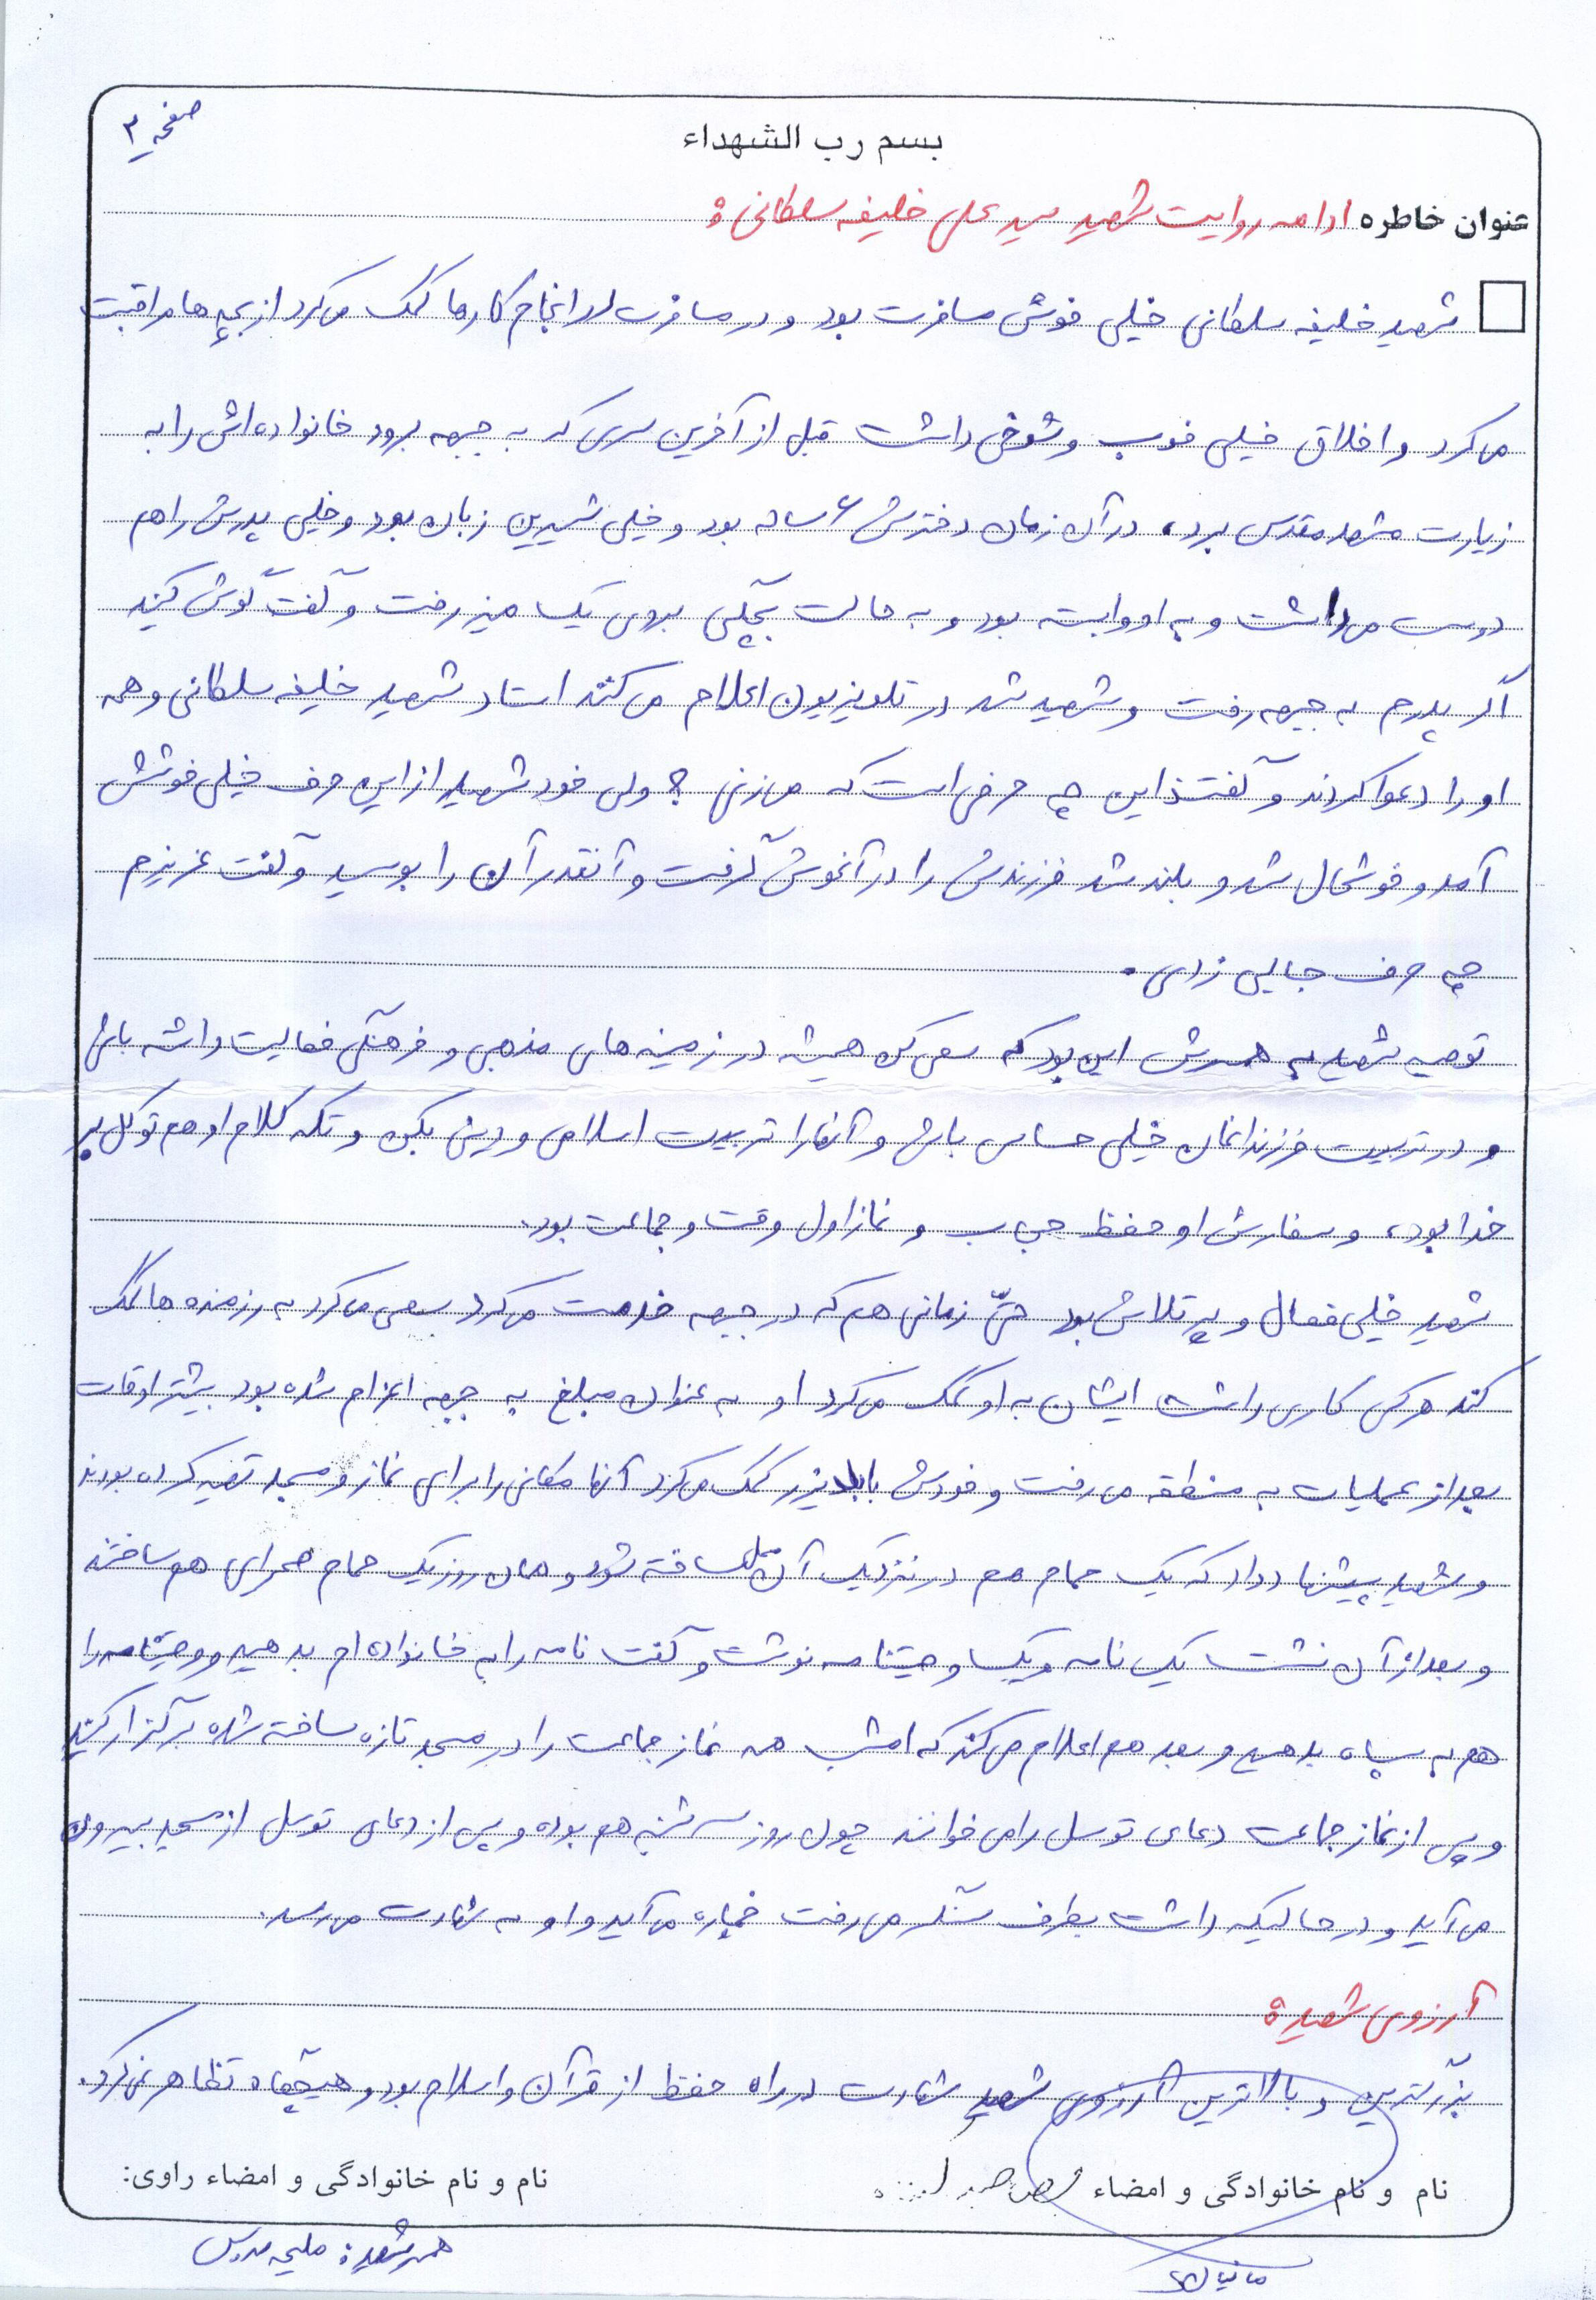 صفحه ۳
بسم رب الشهداء
عنوان خاطره ادامه روایت شهید سید علی خلیفه سلطانی :
شهید خلیفه سلطانی خیلی خوش مسافرت بود و در مسافرت در انجام کارها کمک می‌کرد از بچه ها مراقبت
می‌کرد و اخلاق خیلی خوب و شوخی داشت قبل از آخرین سری که به جبهه برود خانواده‌اش را به
زیارت مشهد مقدس برد، در آن زمان دخترش ۶ ساله بود و خیلی شیرین زبان بود و خیلی پدرش را هم
دوست می‌داشت و به او وابسته بود و به حالت بچگی بروی یک میز رفت و گفت گوش کنید
اگر پدرم به جبهه رفت و شهید شد در تلویزیون اعلام می‌کنند استاد شهید خلیفه سلطانی و همه
او را دعوا کردند و گفتند این چه حرفی است که می‌زنی ؟ ولی خود شهید از این حرف خیلی خوشش
آمد و خوشحال شد و بلند شد فرزندش را در آغوش گرفت و آنقدر آن را بوسید و گفت عزیزم
چه حرف جالبی زدی .
توصیه شهید به همسرش این بود که سعی کن همیشه در زمینه های مذهبی و فرهنگی فعالیت داشته باش
و در تربیت فرزندانمان خیلی حساس باش و آنها را تربیت اسلامی و دینی بکن و تکه کلام او هم توکل بر
خدا بود، و سفارش او حفظ حجاب و نماز اول وقت و جماعت بود.
شهید خیلی فعال و پر تلاش بود حتّی زمانی هم که در جبهه خدمت می‌کرد سعی می‌کرد به رزمنده ها کمک
کند هر کس کاری داشت ایشان به او کمک می‌کرد او به عنوان مبلغ به جبهه اعزام شده بود بیشتر اوقات
بعد از عملیات به منطقه می‌رفت و خودش با بلدیزر کمک می‌کرد آنها مکانی را برای نماز و مسجد تهیه کرده بودند
و شهید پیشنهاد داد که یک حمام هم در نزدیک آن محل ساخته شود و همان روز یک حمام صحرایی هم ساختند
و بعد از آن نشست یک نامه و یک وصیتنامه نوشت و گفت نامه را به خانواده ام بدهید و وصیتنامه را
هم به سپاه بدهید و بعد هم اعلام می‌کند که امشب همه نماز جماعت را در مسجد تازه ساخته شده برگزار کنید
و پس از نماز جماعت دعای توسل را می خوانند چون روز سه شنبه هم بوده و پس از دعای توسل از مسجد بیرون
می‌آید و در حالیکه داشت بطرف سنگر می‌رفت خمپاره می‌آید و او به شهادت می‌رسد.
آرزوی شهید :
بزرگترین و بالاترین آرزوی شهید شهادت در راه حفظ از قرآن و اسلام بود و هیچگاه تظاهر نمی‌کرد.
نام و نام خانوادگی و امضاء
نام و نام خانوادگی و امضاء راوی:
همسر شهید : ملیحه مدرس